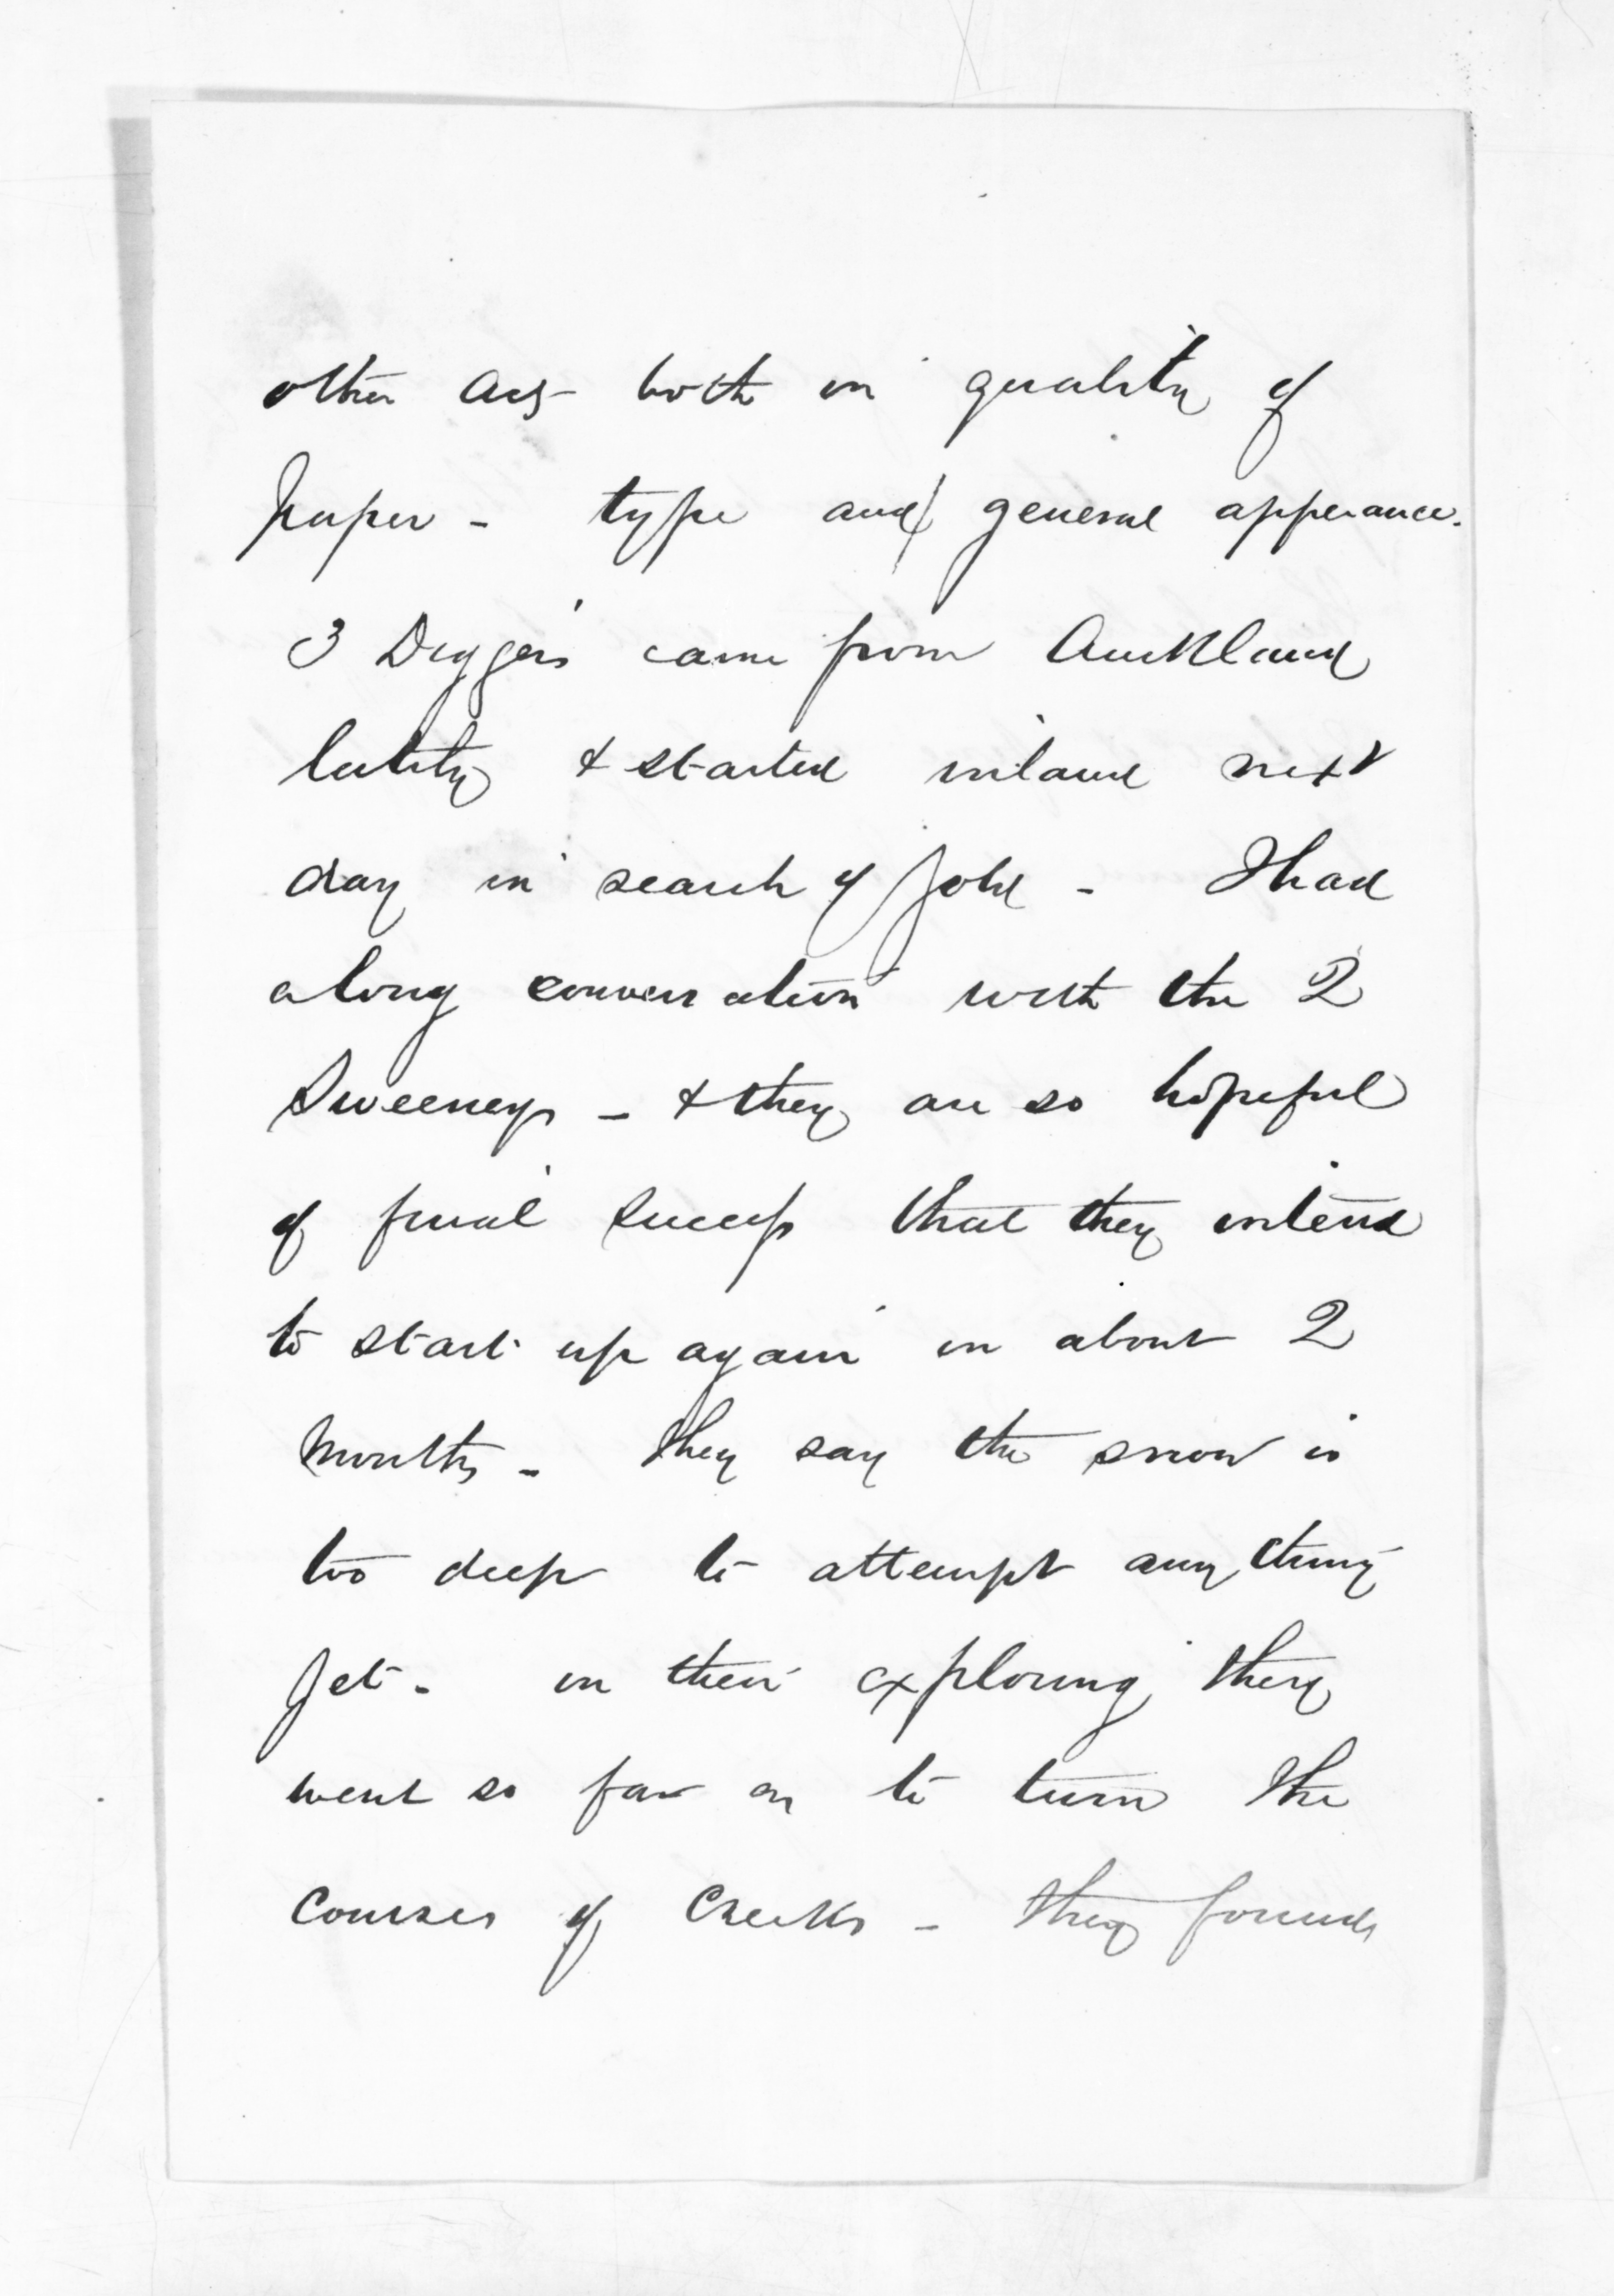 other Acts both in quality of
paper - type and general apperance.
3 Diggers came from Auckland
lately & started inland next
day in search of Gold - I had
a long conversation with the 2
Sweeneys - & they are so hopeful
of final success that they intend
to start up again in about 2
months - they say the snow is
too deep to attempt any thing
yet - in their exploring they
went so far as to turn the
courses of Creeks - they found